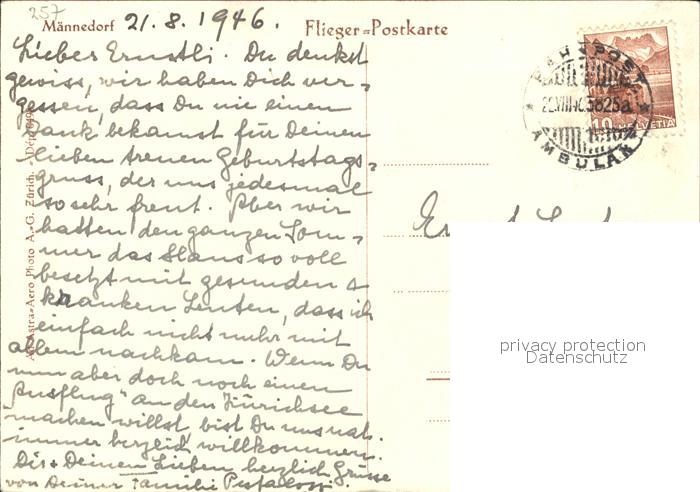 257
Männedorf 21.8.1946. Flieger=Postkarte
Lieber Ernstli. Du denkst
gewiss, wir haben Dich ver-
gessen, dass Du nie einen
Dank bekamst für Deinen
lieben treuen Geburtstags-
gruss, der uns jedesmal
so sehr freut. Aber wir
hatten den ganzen Som-
mer das Haus so voll
besetzt mit gesunden &
kranken Leuten, dass ich
einfach nicht mehr mit
allem nachkam. Wenn Du
nun aber doch noch einen
"Ausflug" an den Zürichsee
machen willst bist Du uns nat.
immer herzlich willkommen.
Dir + Deinen Lieben herzlich Grüsse
von Deiner Familie Pestalozzi.
Astra-Aero Photo A.-G. Zürich.
BAHNPOST
AMBULANT
10 HELVETIA
privacy protection
Datenschutz